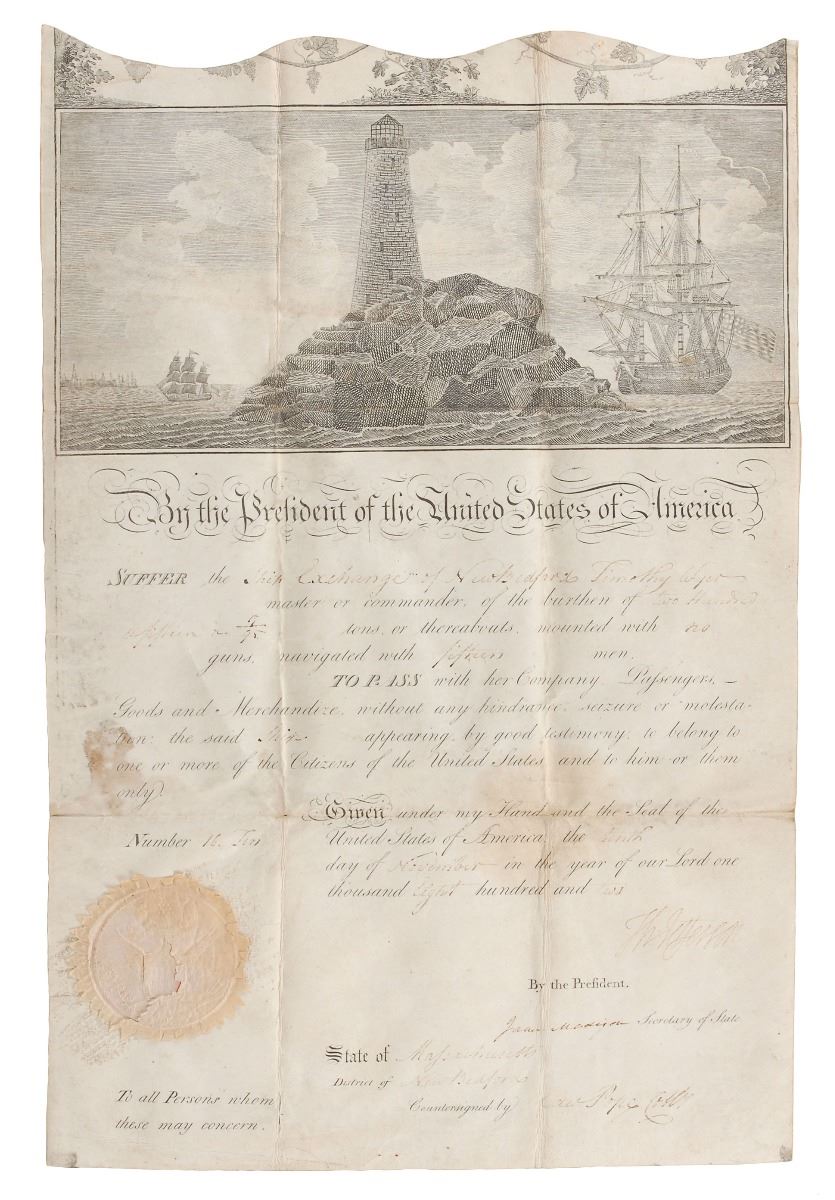 By the President of the United States of America
SUFFER the Ship Exchange of New Bedford Timothy Wyer
master or commander, of the burthen of two Hundred
fifteen 9/95 tons, or thereabouts, mounted with no
guns, navigated with fifteen men,
TO PASS with her Company, Passengers, —
Goods and Merchandize, without any hindrance, seizure or molesta-
tion: the said Ship appearing, by good testimony, to belong to
one or more of the Citizens of the United States and to him or them
only.
Given under my Hand and the Seal of the
United States of America, the tenth
day of November in the year of our Lord one
thousand Eight hundred and two
Number 16. Ten
Th: Jefferson
By the President,
James Madison Secretary of State
State of Massachusetts
District of New Bedford
Countersigned by Edw Pope Collr
To all Persons whom
these may concern.